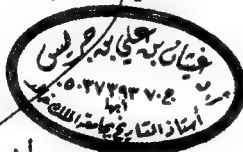 غيثان بن علي بن جريس
ج . ٠٥٠٣٧٣٩٣٧٠
أبها
أستاذ التاريخ بجامعة الملك خالد